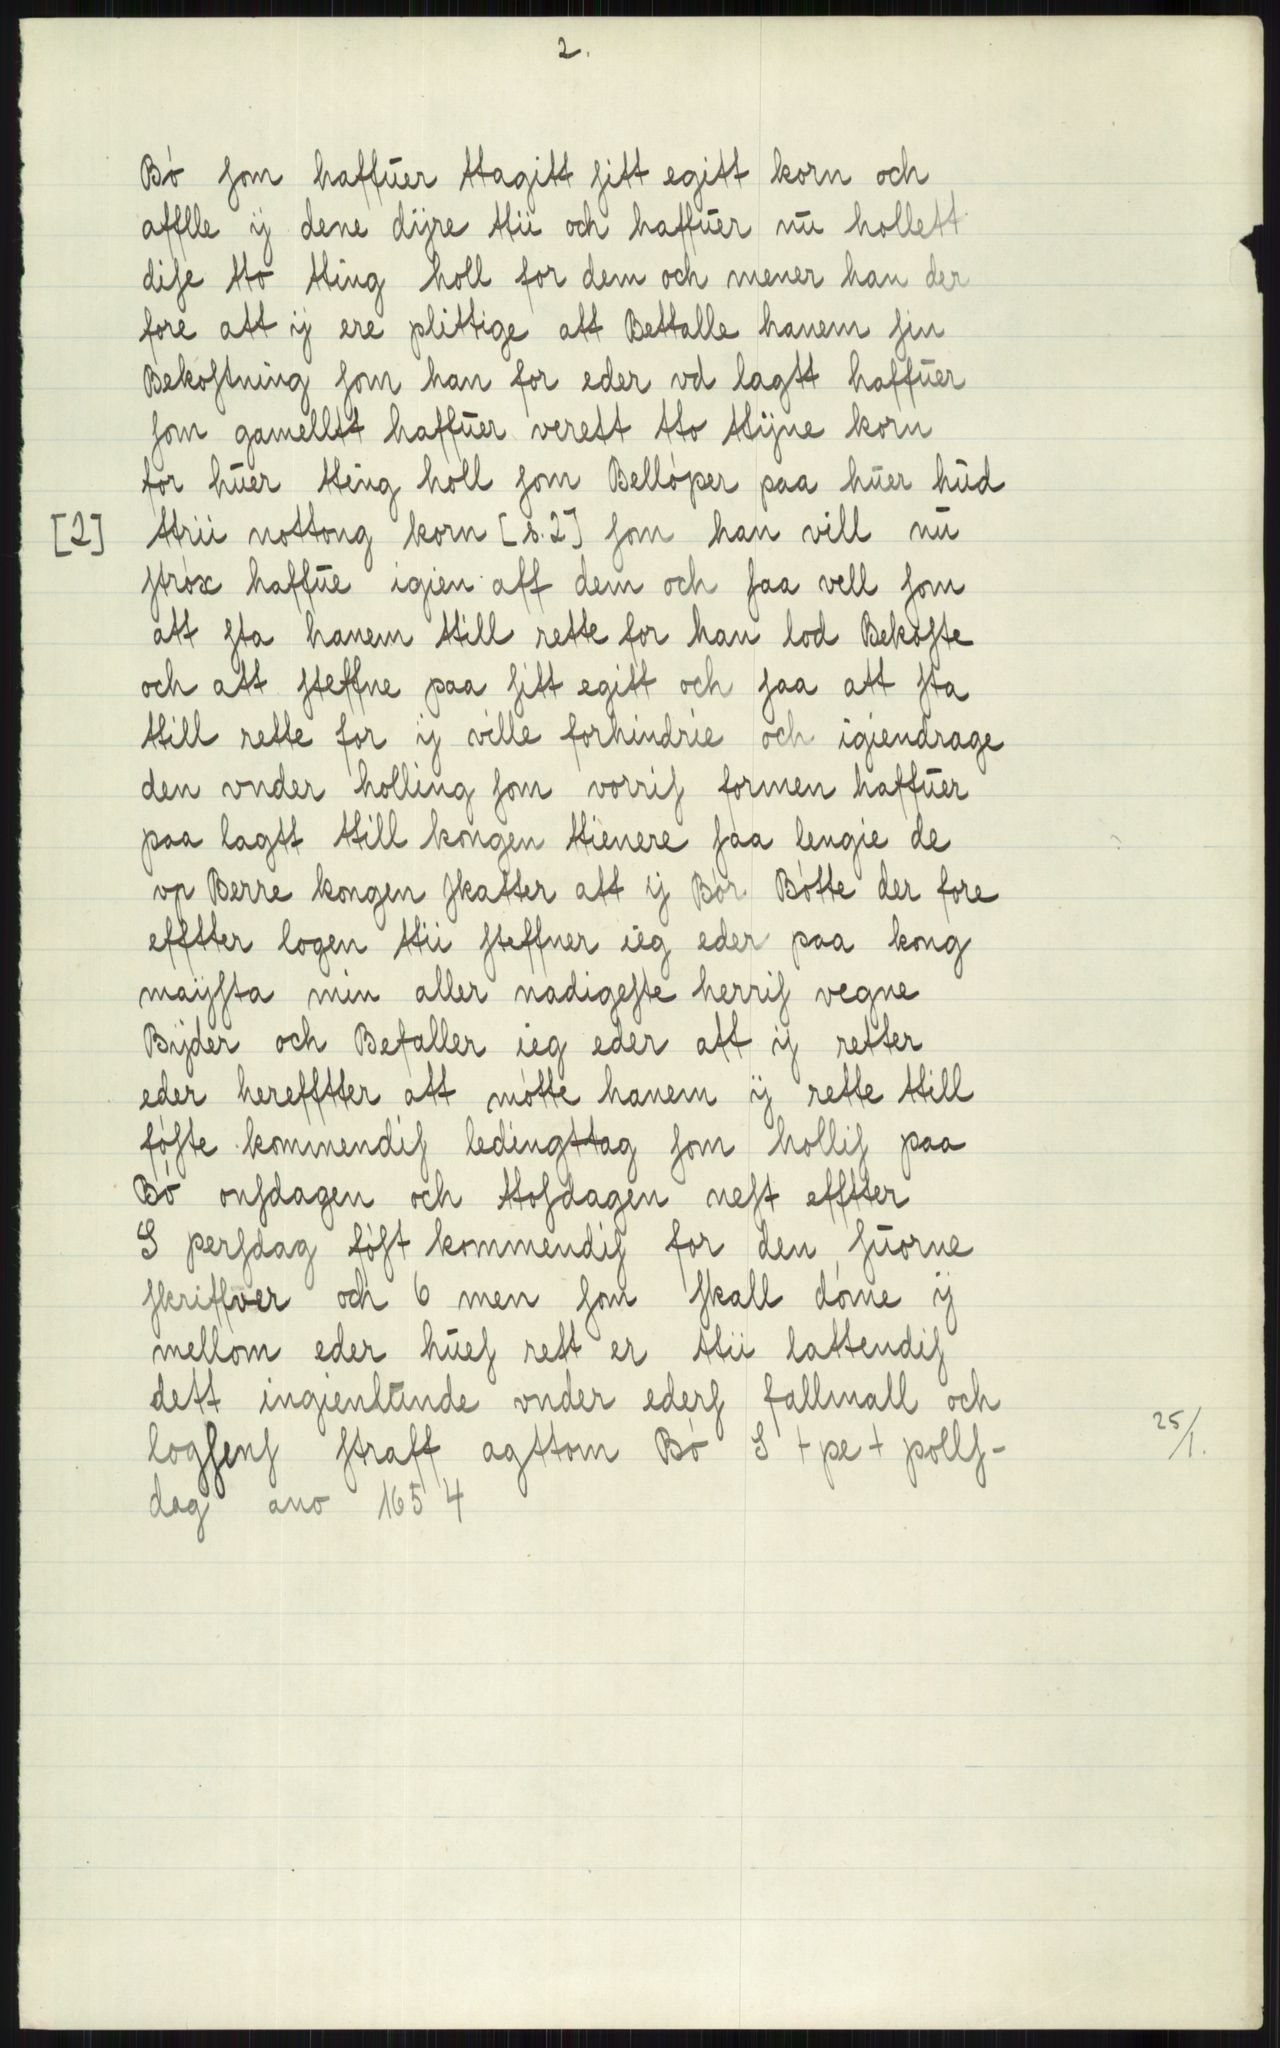 2.
Bó som haffūer ttagitt sitt egitt korn och
afflle ij dene dijre ttii och haffūer nū hollett
dise tto tting holl for dem och mener han der
fore att ij ere plittige att Bettalle hanem sin
Bekostning som han for eder vd lagtt haffūer
som gamelltt haffūer verett tto ttijne korn
for hūer tting holl som Bellóper paa hūer hūd
[2] ttrii nottong korn [s. 2] som han vill nū
stróx haffūe igien aff dem och saa vell som
att sta hanem ttill rette for han lod Bekóste
och att steffne paa sitt egitt och saa att sta
ttill rette for ij ville forhindrie och igiendrage
den vnder holling som vorris formen haffūer
paa lagtt ttill kongen ttienere saa lengie de
vp Berre kongen skatter att ij Bór Bótte der fore
efftter logen ttii steffner ieg eder paa kong
maijsta min aller nadigeste herris vegne
Bijder och Befaller ieg eder att ij retter
eder herefftter att mótte hanem ij rette ttill
fóste kommendis ledingttag som hollis paa
Bó onsdagen och ttosdagen nest efftter
S persdag fóst kommendis for den suorne
skriffver och 6 men som skall dóme ij
mellom eder hūes rett er ttii lattendis
dett ingienlūnde vnder eders fallmall och
logsens straff agttom Bó S + pe + polls-
25/1.
dag ano 1654